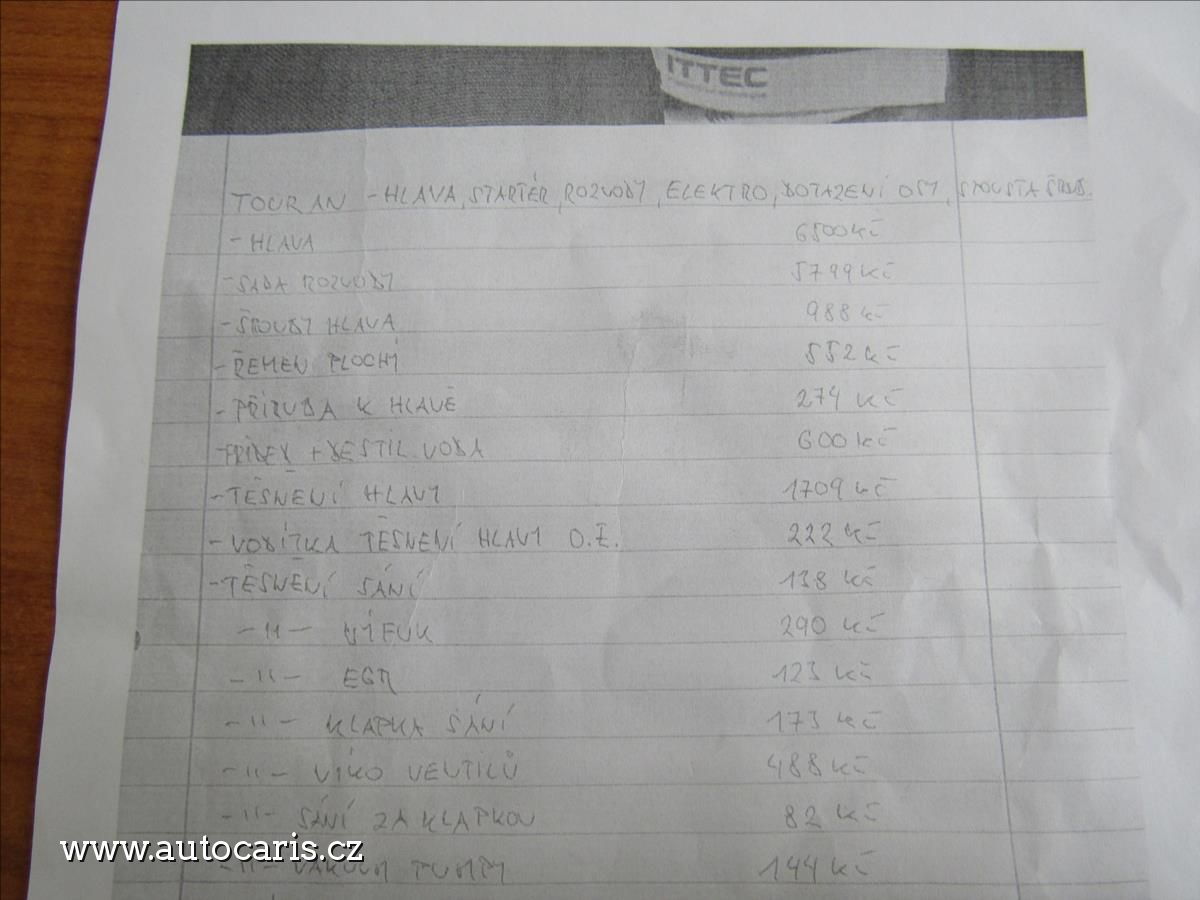 ITTEC
TOURAN - HLAVA, STARTÉR, ROZVODY, ELEKTRO, DOTAŽENÍ OSY, SPOUSTA ŠROUB.
- HLAVA 6500 Kč
- SADA ROZVODY 5799 Kč
- ŠROUBY HLAVA 988 Kč
- ŘEMEN PLOCHÝ 552 Kč
- PŘÍRUBA K HLAVĚ 274 Kč
- FRIDEX + DESTIL. VODA 600 Kč
- TĚSNENÍ HLAVY 1709 Kč
- VODÍTKA TĚSNENÍ HLAVY O.E. 222 Kč
- TĚSNĚNÍ SÁNÍ 138 Kč
-11- VÝFUK 290 Kč
-11- EGR 123 Kč
-11- KLAPKA SÁNÍ 173 Kč
-11- VÍKO VENTILŮ 488 Kč
-11- SÁNÍ ZA KLAPKOU 82 Kč
-11- VAKUUM PUMPY 144 Kč
www.autocaris.cz